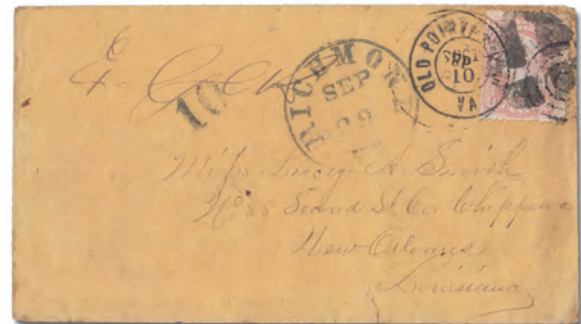 RICHMOND
SEP
29
10
OLD POINT
SEP
10
VA
Miss Lucy A. Smith
No. 88 Second St. Cor Chippewa
New Orleans
Louisiana